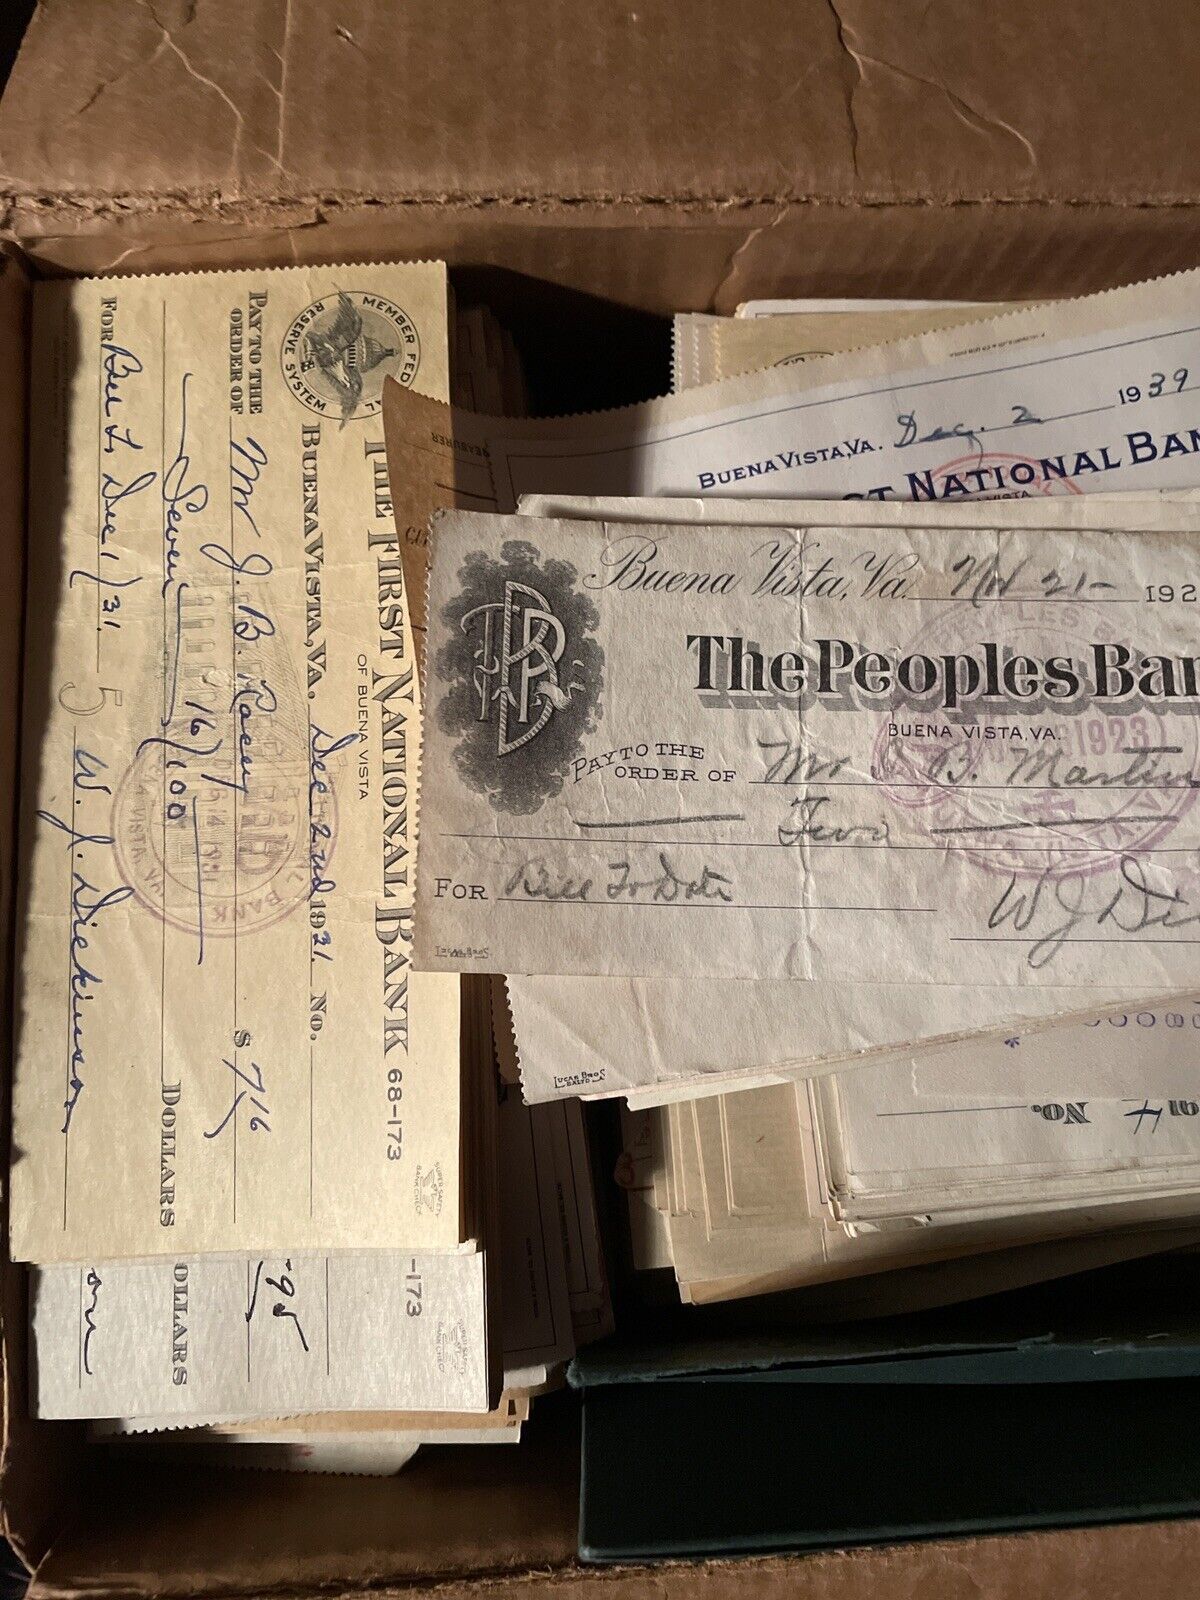 MEMBER FEDERAL
RESERVE SYSTEM
THE FIRST NATIONAL BANK 68-173
OF BUENA VISTA
BUENA VISTA, VA. Dec 2nd 1931. No.
PAY TO THE
ORDER OF Mr J. B. Racey $ 7 16
Seven 16/100 DOLLARS
FOR Bill To Dec 1/31. 5 W. J. Dickinson
SUPER SAFETY
BANK CHECK
-173
95
OLLARS
on
SUPER SAFETY
BANK CHECK
EASURER
BUENA VISTA, VA. Dec. 2 1939
ST NATIONAL BAN
VISTA
Buena Vista, Va. Nov 21- 192
The Peoples Ban
BUENA VISTA, VA.
1923
PAY TO THE
ORDER OF Mr B. Martin
Two
FOR Bill To Date
W J Di
LUCAS BROS
LUCAS BROS
BALTO
No. 4